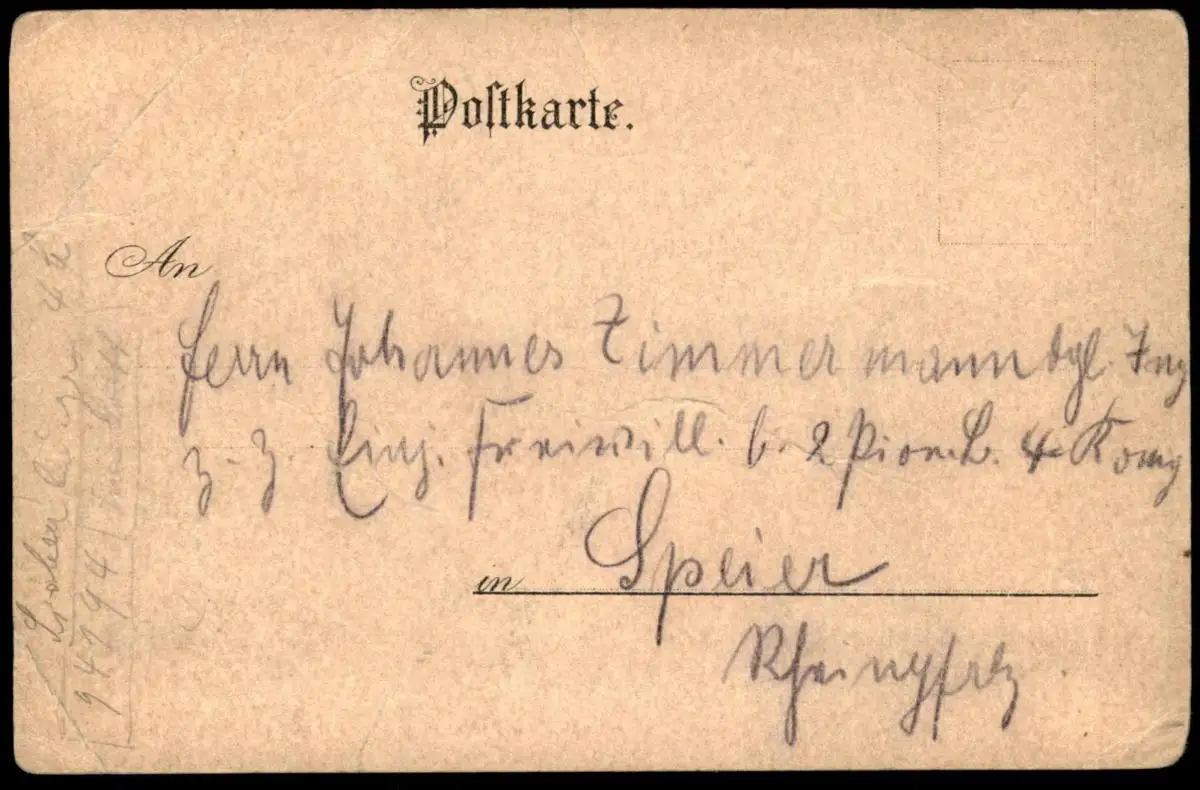 Postkarte.
An
Herrn Johannes Zimmermann dgl. Ing
z. Z. Einj. Freiwill. b. 2 Pion. B. 4 Komp
in Speier
Rheinpfalz.
94794